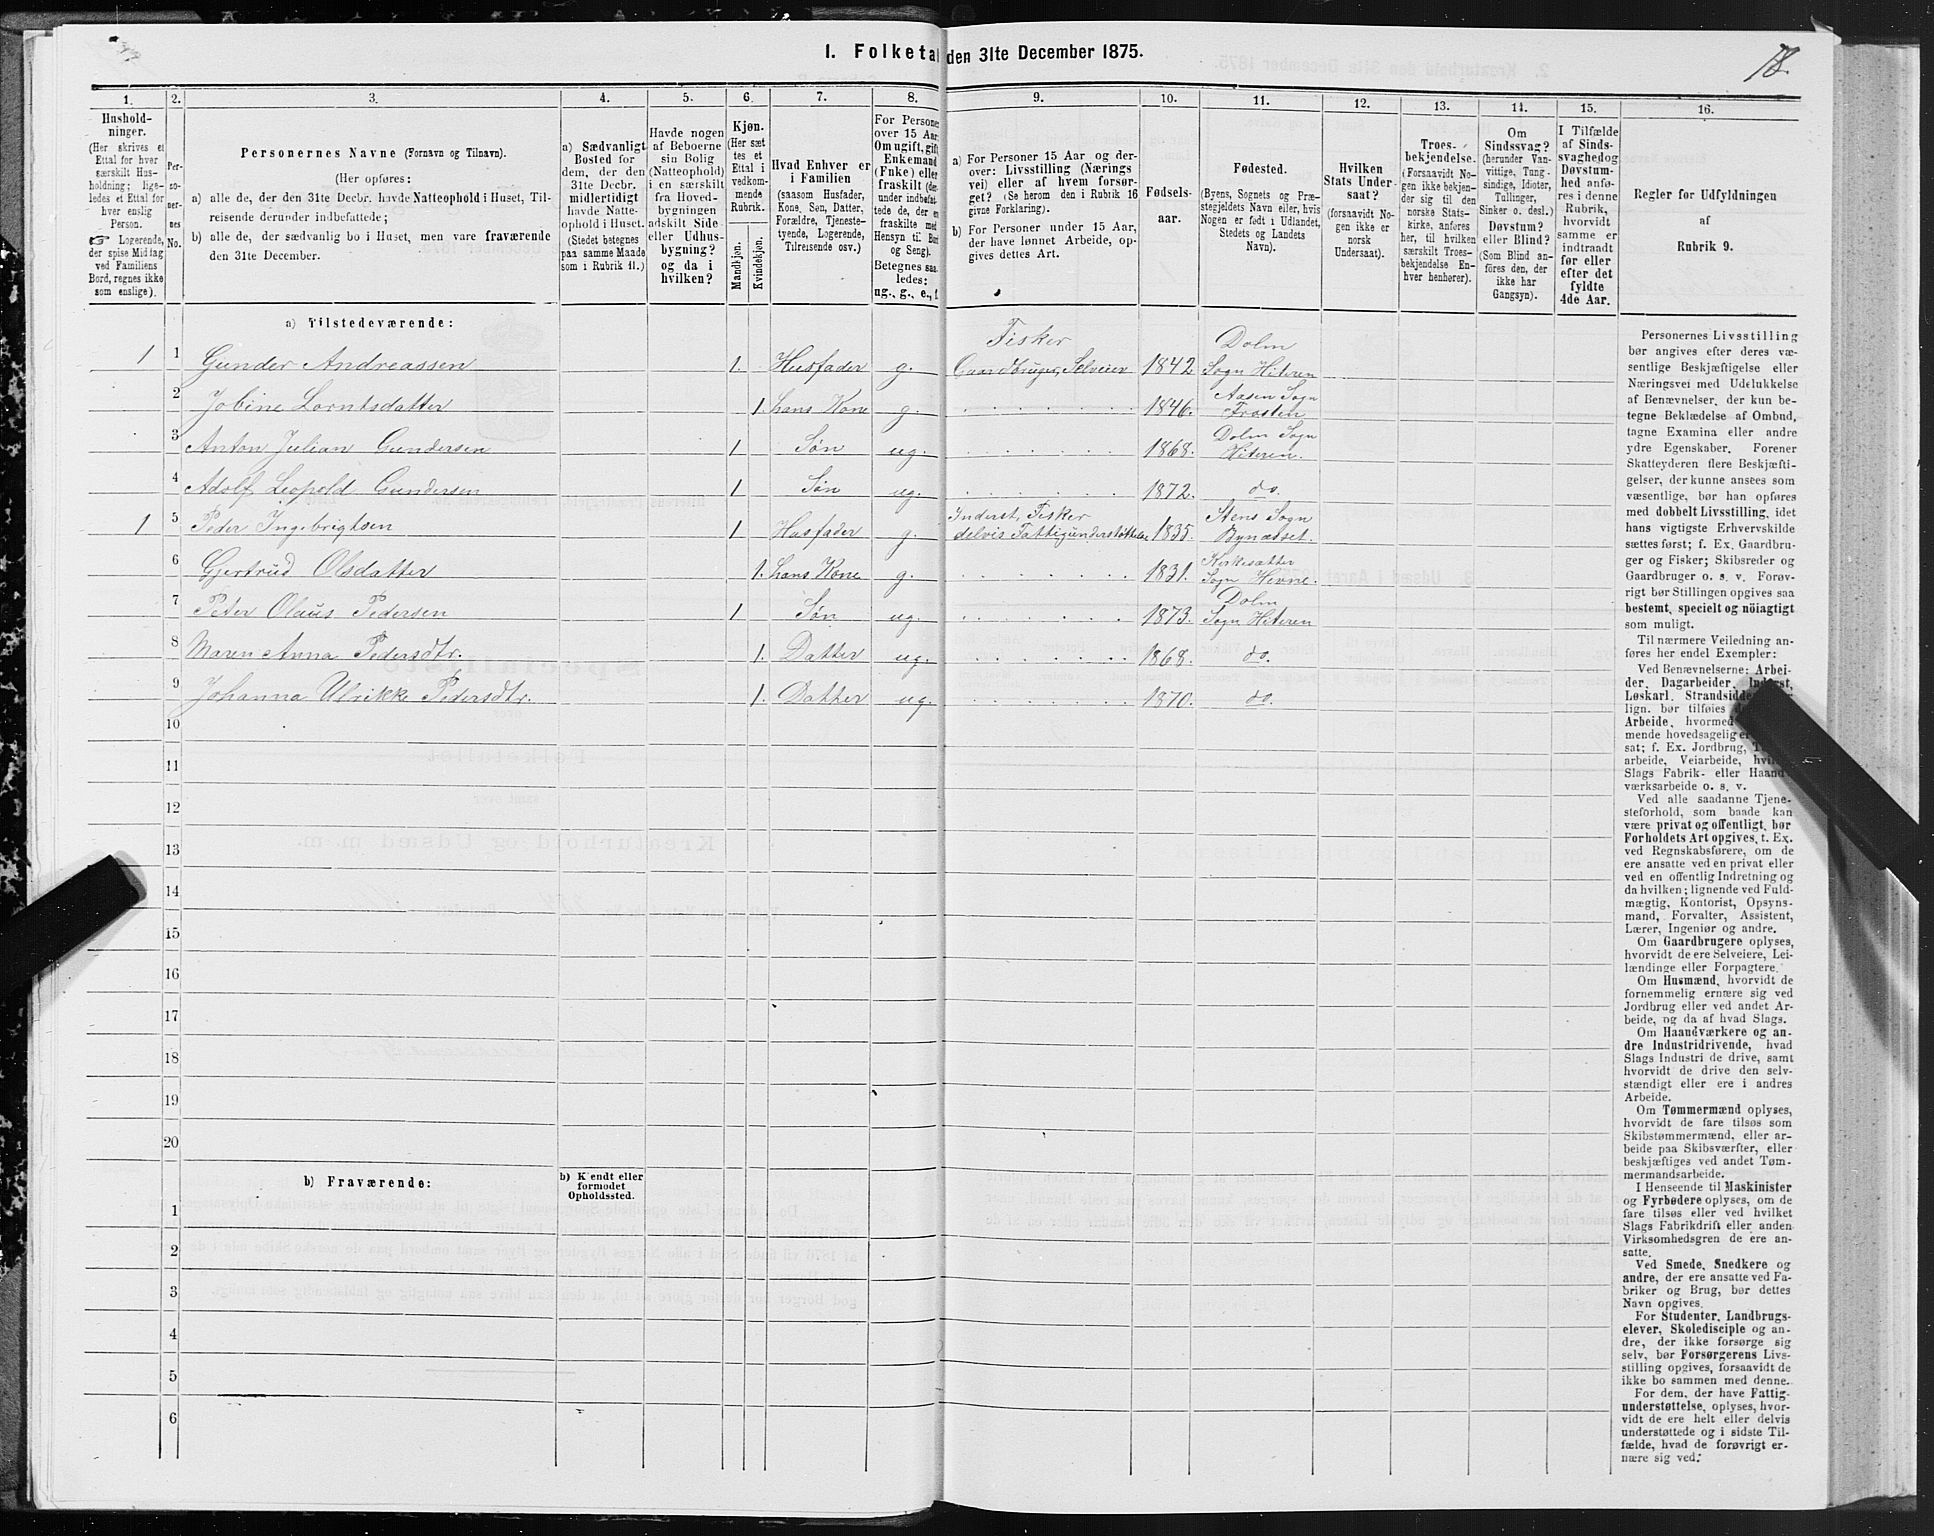 I. Folketal den 31te December 1875.
18.
1.
2.
3.
4.
5.
6.
7.
8.
9.
10.
11.
12.
13.
14.
15.
16.
Hushold-
ninger.
(Her skrives et
Ettal for hver
særskilt Hus-
holdning; lige-
ledes et Ettal for
hver enslig
Person.
Logerende,
der spise Middag
ved Familiens
Bord, regnes ikke
som enslige).
Per-
so-
ner-
nes
No.
Personernes Navne (Fornavn og Tilnavn).
(Her opføres:
a) alle de, der den 31te Decbr. havde Natteophold i Huset, Til-
reisende derunder indbefattede;
b) alle de, der sædvanlig bo i Huset, men vare fraværende
den 31te December.
a) Sædvanligt
Bosted for
dem, der den
31te Decbr.
midlertidigt
havde Natte-
ophold i Huset.
(Stedet betegnes
paa samme Maade
som i Rubrik 11.)
Havde nogen
af Beboerne
sin Bolig
(Natteophold)
i en særskilt
fra Hoved-
bygningen
adskilt Side-
eller Udhus-
bygning?
og da i
hvilken?
Kjøn.
(Her sæt
tes et
Ettal i
vedkom-
mende
Rubrik.
Mandkjøn.
Kvindekjøn.
Hvad Enhver er
i Familien
(saasom Husfader,
Kone, Søn, Datter,
Forældre, Tjeneste-
tyende, Logerende,
Tilreisende osv.)
For Personer
over 15 Aar:
Om ugift, gift,
Enkemand
(Enke) eller
fraskilt (der-
under indbefat-
tede de, der er
fraskilte med
Hensyn til Bord
og Seng).
Betegnes saa-
ledes:
ug., g., e., f.
a) For Personer 15 Aar og der-
over: Livsstilling (Nærings-
vei) eller af hvem forsør-
get? (Se herom den i Rubrik 16
givne Forklaring).
b) For Personer under 15 Aar,
der have lønnet Arbeide, op-
gives dettes Art.
Fødsels-
aar.
Fødested.
(Byens, Sognets og Præ-
stegjeldets Navn eller, hvis
Nogen er født i Udlandet,
Stedets og Landets
Navn).
Hvilken
Stats Under-
saat?
(forsaavidt No-
gen ikke er
norsk
Undersaat).
Troes-
bekjendelse.
(Forsaavidt No-
gen ikke bekjen-
der sig til den
norske Stats-
kirke, anføres
her, til hvilken
særskilt Troes-
bekjendelse En-
hver henhører).
Om
Sindssvag?
(herunder Van-
vittige, Tung-
sindige, Idioter,
Tullinger,
Sinker o. desl.)
Døvstum?
eller Blind?
(Som Blind an-
føres den, der
ikke har
Gangsyn).
I Tilfælde
af Sinds-
svaghed og
Døvstum-
hed anfø-
res i denne
Rubrik,
hvorvidt
samme er
indtraadt
før eller
efter det
fyldte
4de Aar.
Regler for Udfyldningen
af
Rubrik 9.
a) Tilstedeværende:
1 1 Gunder Andreassen 1. Husfader g. Fisker Gaardbruger, Selveier 1842 Dolm Sogn Hiteren
2 Jobine Lorntsdatter 1. hans Kone g. 1846. Aasen Sogn Frosten
3 Anton Julian Gundersen 1 Søn ug. 1868. Dolm Sogn Hiteren.
4 Adolf Leopold Gundersen 1 Søn ug. 1872. do.
1 5 Peder Ingebrigtsen 1 Husfader g. Inderst, Fisker delvis Fattigunderstøttelse 1835. Stens Sogn Bynæsset.
6 Gjertrud Olsdatter 1. hans Kone g. 1831. Kirkesætter Sogn Hevne.
7 Peter Olaus Pedersen 1 Søn ug. 1873. Dolm Sogn Hiteren
8 Maren Anna Pedersdtr. 1. Datter ug. 1868. do.
9 Johanna Ulrikke Pedersdtr. 1. Datter ug. 1870. do.
10
11
12
13
14
15
16
17
18
19
20
b) Fraværende:
b) Kjendt eller
formodet
Opholdssted.
1
2
3
4
5
6
Personernes Livsstilling
bør angives efter deres væ-
sentlige Beskjæftigelse eller
Næringsvei med Udelukkelse
af Benævnelser, der kun be-
tegne Beklædelse af Ombud,
tagne Examina eller andre
ydre Egenskaber. Forener
Skatteyderen flere Beskjæfti-
gelser, der kunne ansees som
væsentlige, bør han opføres
med dobbelt Livsstilling, idet
hans vigtigste Erhvervskilde
sættes først; f. Ex. Gaardbru-
ger og Fisker; Skibsreder og
Gaardbruger o. s. v. Forøv-
rigt bør Stillingen opgives saa
bestemt, specielt og nøiagtigt
som muligt.
Til nærmere Veiledning an-
føres her endel Exempler:
Ved Benævnelserne: Arbei-
der, Dagarbeider, Inderst,
Løskarl, Strandsidder
lign. bør tilføies
Arbeide, hvormed
mende hovedsagelig er
sat; f. Ex. Jordbrug,
arbeide, Veiarbeide,
Slags Fabrik- eller Haand-
værksarbeide o. s. v.
Ved alle saadanne Tjene-
steforhold, som baade kan
være privat og offentligt, bør
Forholdets Art opgives, t. Ex.
ved Regnskabsførere, om de
ere ansatte ved en privat eller
ved en offentlig Indretning og
da hvilken; lignende ved Fuld-
mægtig, Kontorist, Opsyns-
mand, Forvalter, Assistent,
Lærer, Ingeniør og andre.
Om Gaardbrugere oplyses,
hvorvidt de ere Selveiere, Lei-
lændinge eller Forpagtere.
Om Husmænd, hvorvidt de
fornemmelig ernære sig ved
Jordbrug eller ved andet Ar-
beide, og da af hvad Slags.
Om Haandværkere og an-
dre Industridrivende, hvad
Slags Industri de drive, samt
hvorvidt de drive den selv-
stændigt eller ere i andres
Arbeide.
Om Tømmermænd oplyses,
hvorvidt de fare tilsøs som
Skibstømmermænd, eller ar-
beide paa Skibsværfter, eller
beskjæftiges ved andet Tøm-
mermandsarbeide.
I Henseende til Maskinister
og Fyrbødere oplyses, om de
fare tilsøs eller ved hvilket
Slags Fabrikdrift eller anden
Virksomhedsgren de ere an-
satte.
Ved Smede, Snedkere og
andre, der ere ansatte ved Fa-
briker og Brug, bør dettes
Navn opgives.
For Studenter, Landbrugs-
elever, Skoledisciple og an-
dre, der ikke forsørge sig
selv, bør Forsørgerens Livs-
stilling opgives, forsaavidt de
ikke bo sammen med denne.
For dem, der have Fattig-
understøttelse, oplyses, hvor-
vidt de ere helt eller delvis
understøttede og i sidste Til-
fælde, hvad de forøvrigt er-
nære sig ved.